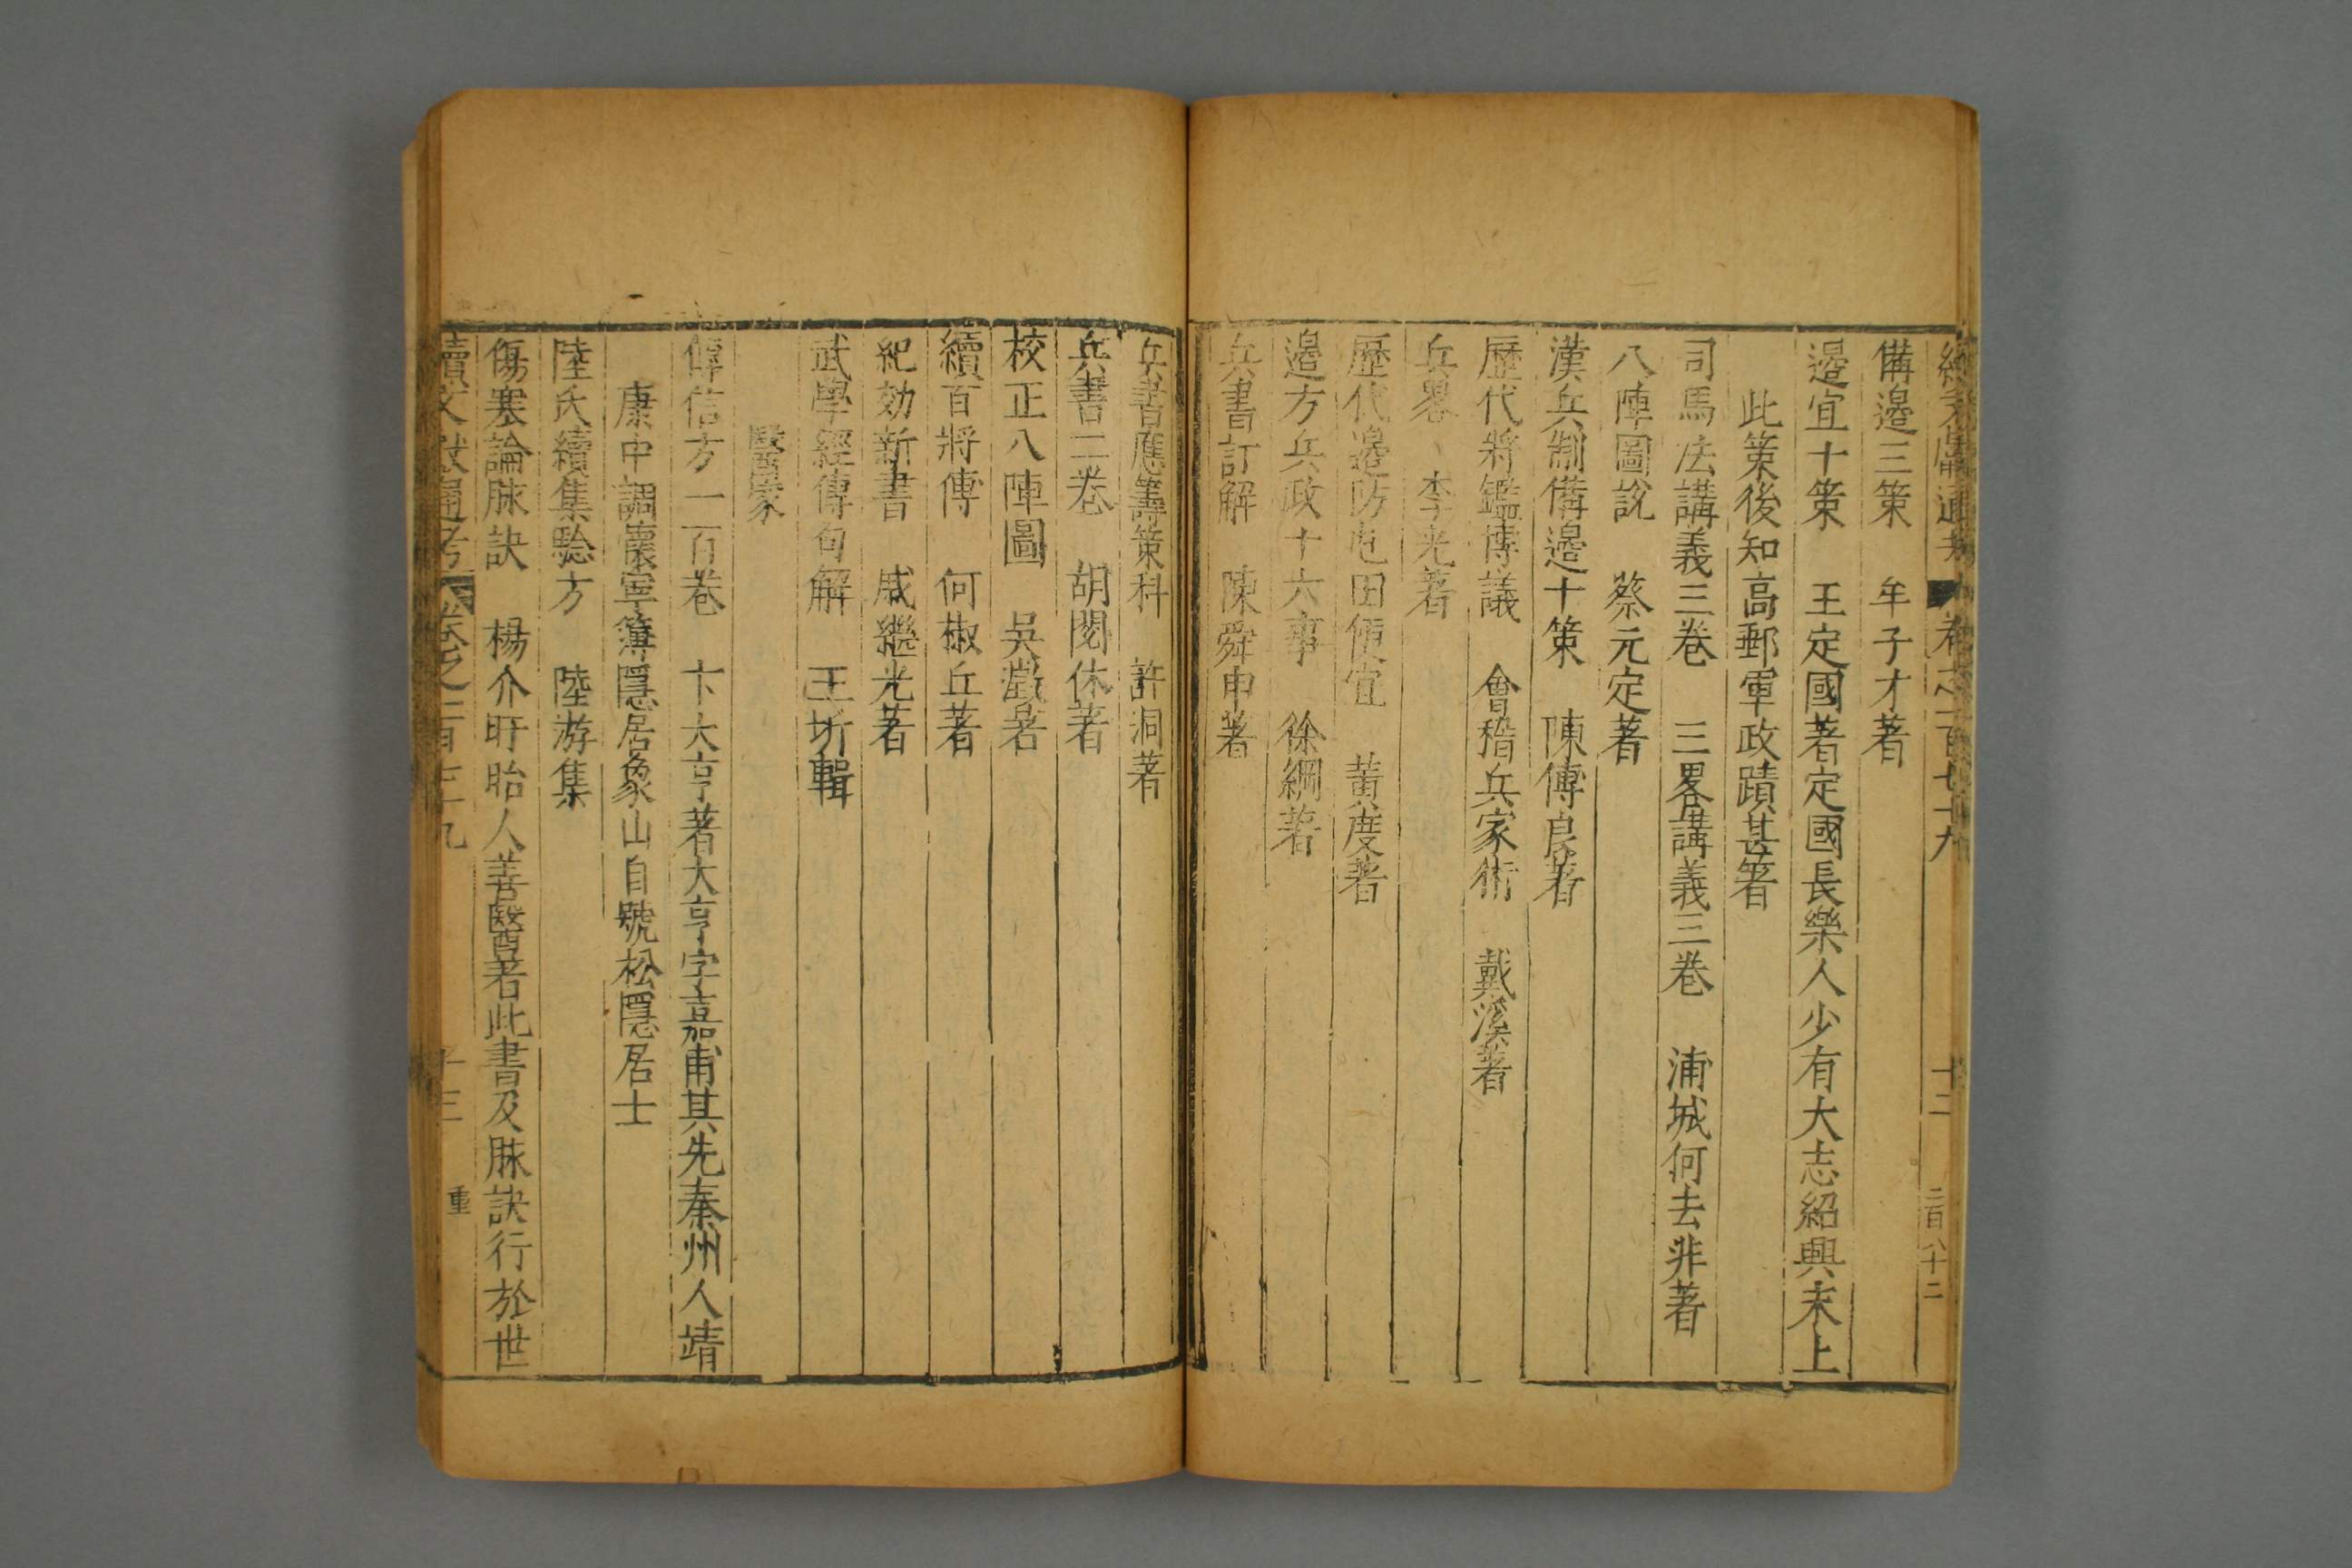 續文獻通考 卷之一百七十九 十二 二百八十二
備邊三策 牟子才著
邊宜十策 王定國著定國長樂人少有大志紹興末上
此策後知高郵軍政蹟甚著
司馬法講義三卷 三畧講義三卷 浦城何去非著
八陣圖說 蔡元定著
漢兵制備邊十策 陳傅良著
歷代將鑑博議 會稽兵家術 戴溪著
兵畧 李光著
歷代邊防屯田便宜 黃度著
邊方兵政十六事 徐綱著
兵書訂解 陳舜申著
兵書應籌策科 許洞著
兵書二卷 胡閎休著
校正八陣圖 吳澂著
續百將傳 何椒丘著
紀効新書 戚繼光著
武學經傳句解 王圻輯
醫家
傳信方一百卷 卞大亨著大亨字嘉甫其先秦州人靖
康中調懷寧簿隱居象山自號松隱居士
陸氏續集驗方 陸游集
傷寒論脉訣 楊介盱眙人善醫著此書及脉訣行於世
續文獻通考 卷之一百七十九 十三 重